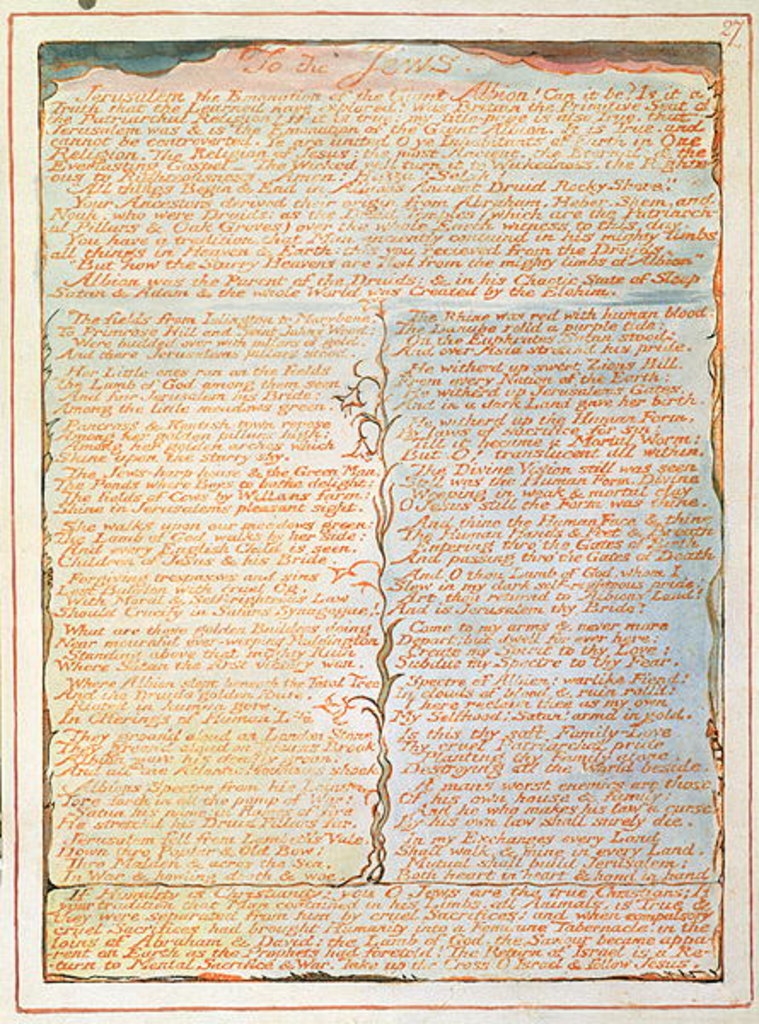 27
To the Jews.
Jerusalem the Emanation of the Giant Albion! Can it be? Is it a
Truth that the Learned have explored? Was Britain the Primitive Seat of
the Patriarchal Religion? If it is true: my title-page is also True, that
Jerusalem was & is the Emanation of the Giant Albion. It is True, and
cannot be controverted. Ye are united O ye Inhabitants of Earth in One
Religion. The Religion of Jesus: the most Ancient, the Eternal: & the
Everlasting Gospel_ The Wicked will turn it to Wickedness, the Righte-
ous to Righteousness. Amen! Huzza! Selah!
All things Begin & End in Albions Ancient Druid Rocky Shore.
Your Ancestors derived their origin from Abraham, Heber, Shem, and
Noah, who were Druids: as the Druid Temples (which are the Patriarch-
al Pillars & Oak Groves) over the whole Earth witness to this day.
You have a tradition, that Man anciently containd in his mighty limbs
all things in Heaven & Earth: this you recieved from the Druids.
But now the Starry Heavens are fled from the mighty limbs of Albion
Albion was the Parent of the Druids; & in his Chaotic State of Sleep
Satan & Adam & the whole World was Created by the Elohim.
The fields from Islington to Marybone,
To Primrose Hill and Saint Johns Wood:
Were builded over with pillars of gold,
And there Jerusalems pillars stood.
Her Little-ones ran on the fields
The Lamb of God among them seen
And fair Jerusalem his Bride:
Among the little meadows green.
Pancrass & Kentish-town repose
Among her golden pillars high:
Among her golden arches which
Shine upon the starry sky.
The Jews-harp-house & the Green Man;
The Ponds where Boys to bathe delight:
The fields of Cows by Willans farm:
Shine in Jerusalems pleasant sight.
She walks upon our meadows green:
The Lamb of God walks by her side:
And every English Child is seen,
Children of Jesus & his Bride,
Forgiving trespasses and sins
Lest Babylon with cruel Og,
With Moral & Self-righteous Law
Should Crucify in Satans Synagogue!
What are those golden Builders doing
Near mournful ever-weeping Paddington
Standing above that mighty Ruin
Where Satan the first victory won.
Where Albion slept beneath the Fatal Tree
And the Druids golden Knife,
Rioted in human gore,
In Offerings of Human Life
They groan'd aloud on London Stone
They groan'd aloud on Tyburns Brook
Albion gave his deadly groan,
And all the Atlantic Mountains shook
Albions Spectre from his Loins
Tore forth in all the pomp of War:
Satan his name: in flames of fire
He stretch'd his Druid Pillars far.
Jerusalem fell from Lambeth's Vale,
Down thro Poplar & Old Bow;
Thro Malden & acros the Sea,
In War & howling death & woe.
The Rhine was red with human blood:
The Danube rolld a purple tide:
On the Euphrates Satan stood:
And over Asia stretch'd his pride.
He witherd up sweet Zions Hill,
From every Nation of the Earth:
He witherd up Jerusalems Gates,
And in a dark Land gave her birth.
He witherd up the Human Form,
By laws of sacrifice for sin:
Till it became a Mortal Worm:
But O! translucent all within.
The Divine Vision still was seen
Still was the Human Form, Divine
Weeping in weak & mortal clay
O Jesus still the Form was thine.
And thine the Human Face & thine
The Human Hands & Feet & Breath
Entering thro' the Gates of Birth
And passing thro' the Gates of Death
And O thou Lamb of God, whom I
Slew in my dark self-righteous pride:
Art thou return'd to Albions Land!
And is Jerusalem thy Bride?
Come to my arms & never more
Depart; but dwell for ever here:
Create my Spirit to thy Love:
Subdue my Spectre to thy Fear.
Spectre of Albion! warlike Fiend!
In clouds of blood & ruin roll'd:
I here reclaim thee as my own
My Selfhood! Satan! armd in gold.
Is this thy soft Family-Love
Thy cruel Patriarchal pride
Planting thy Family alone,
Destroying all the World beside.
A mans worst enemies are those
Of his own house & family;
And he who makes his law a curse,
By his own law shall surely die.
In my Exchanges every Land
Shall walk, & mine in every Land,
Mutual shall build Jerusalem:
Both heart in heart & hand in hand.
If Humility is Christianity; you O Jews are the true Christians; If
your tradition that Man contained in his Limbs, all Animals, is True &
they were separated from him by cruel Sacrifices: and when compulsory
cruel Sacrifices had brought Humanity into a Feminine Tabernacle, in the
loins of Abraham & David: the Lamb of God, the Saviour became appa-
rent on Earth as the Prophets had foretold? The Return of Israel is a Re-
turn to Mental Sacrifice & War. Take up the Cross O Israel & follow Jesus.